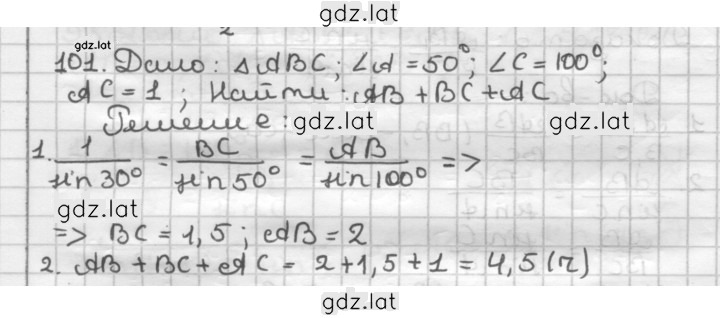 gdz.lat
gdz.lat
101. Дано: △ABC; ∠A = 50°; ∠C = 100°;
AC = 1; Найти: AB + BC + AC
Решение:
gdz.lat
gdz.lat
1. 1/sin 30° = BC/sin 50° = AB/sin 100° =>
gdz.lat
=> BC = 1,5; AB = 2
2. AB + BC + AC = 2 + 1,5 + 1 = 4,5 (г)
gdz.lat